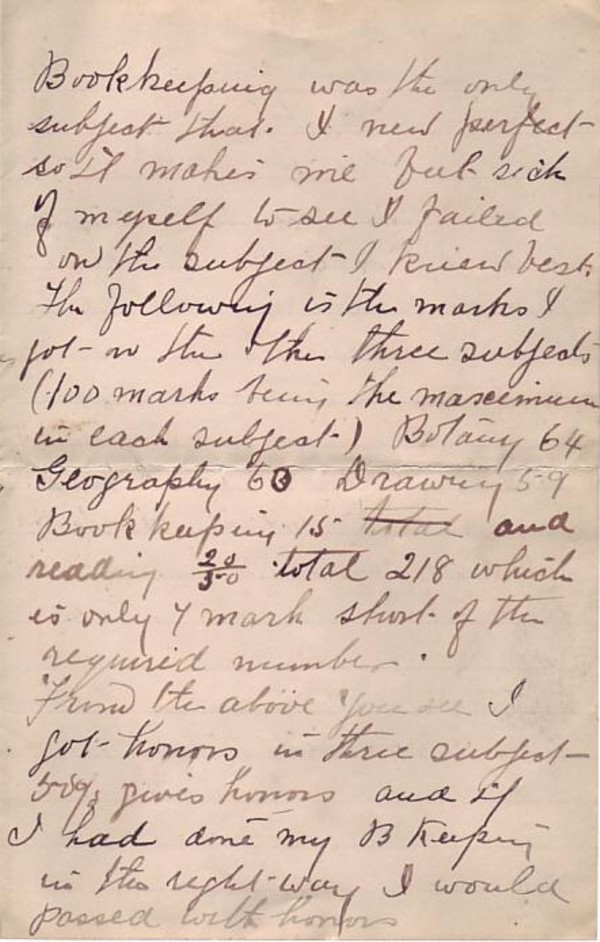 Bookkeeping was the only
subject that. I new perfect
so it makes me feel sick
of myself to see I failed
on the subject I knew best.
The following is the marks I
got in the other three subjects
(100 marks being the maxcimum
in each subject) Botany 64
Geography 60 Drawing 59
Bookkeeping 15 total and
reading 20/50 total 218 which
is only 7 mark short of the
required number.
From the above you see I
got honors in three subject
50% gives honors and if
I had done my B Keeping
in the right way I would
passed with honors